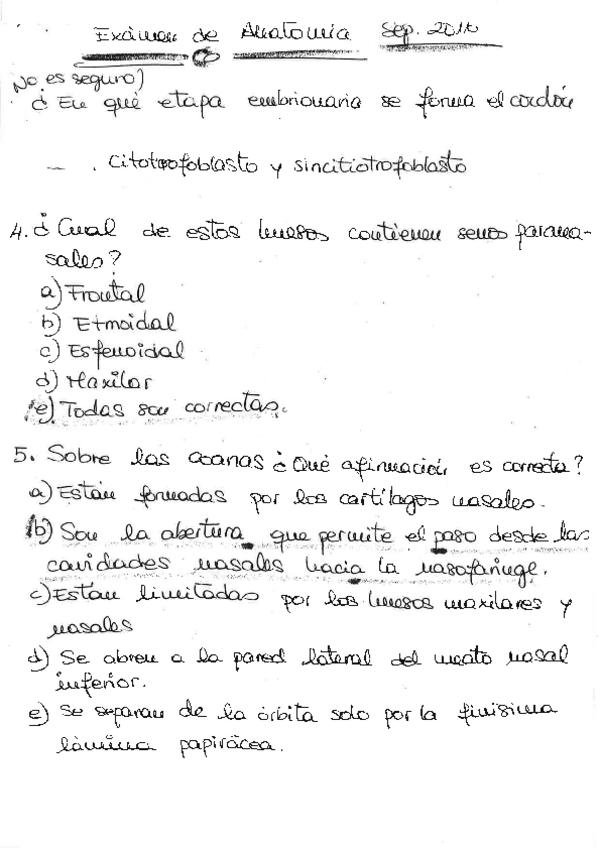 Exámen de Anatomía Sep. 2016
No es seguro)
¿ En qué etapa embrionaria se forma el cordón
— . Citotrofoblasto y sincitiotrofoblasto
4. ¿Cual de estos huesos contienen senos parana-
sales?
a) Frontal
b) Etmoidal
c) Esfenoidal
d) Maxilar
e) Todas son correctas.
5. Sobre las coanas ¿Qué afirmación es correcta?
a) Están formadas por los cartílagos nasales.
b) Son la abertura que permite el paso desde las
cavidades nasales hacia la nasofaringe.
c) Están limitadas por los huesos maxilares y
nasales
d) Se abren a la pared lateral del meato nasal
inferior.
e) Se separan de la órbita solo por la finísima
lámina papirácea.